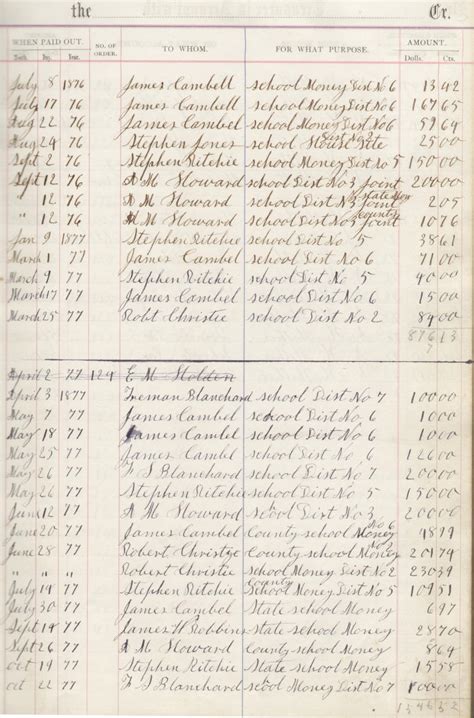 the Cr.
WHEN PAID OUT. NO. OF ORDER. TO WHOM. FOR WHAT PURPOSE. AMOUNT.
Dolls. Cts.
July 8 1876 James Cambell school Money Dist No 6 13 42
July 17 76 James Cambell school Money Dist No 6 167 65
Aug 22 76 James Cambel school Money Dist No 6 59 64
Aug 24 76 Stephen Jones school House Site Dist No 2 25 00
Sept 2 76 Stephen Ritchie school Money Dist No 5 150 00
Sept 12 76 A M Howard school Dist No 3 Joint 200 00
" 12 76 A M Howard school Dist No 3 Joint State 2 05
" 12 76 A M Howard school Dist No 3 Joint County 10 76
Jan 9 1877 Stephen Ritchie school Dist No 5 38 61
March 1 77 James Cambel school Dist No 6 71 00
March 9 77 Stephen Ritchie school Dist No 5 40 00
March 17 77 James Cambel school Dist No 6 15 00
March 25 77 Robt Christie school Dist No 2 84 00
876 13
April 2 77 124 E M Holden
April 3 1877 Freman Blanchard school Dist No 7 100 00
May 7 77 James Cambel school Dist No 6 10 00
May 18 77 James Cambel school Dist No 6 10 00
May 25 77 James Cambel school Dist No 6 120 00
May 26 77 F S Blanchard school Dist No 7 200 00
May 26 77 Stephen Ritchie school Dist No 5 150 00
June 12 77 A M Howard school Dist No 3 200 00
June 20 77 James Cambel County school Money No 6 48 79
June 28 77 Robert Christie County school Money 201 74
" " Robert Christie school Money Dist No 2 230 39
July 14 77 Stephen Ritchie County school Money Dist No 5 109 51
July 30 77 James Cambel State school Money 6 97
Sept 14 77 James H Robbins State school Money 28 70
Sept 26 77 A M Howard County school Money 8 64
oct 19 77 Stephen Ritchie State school Money 15 58
oct 22 77 F S Blanchard scool Money Dist No 7 100 00